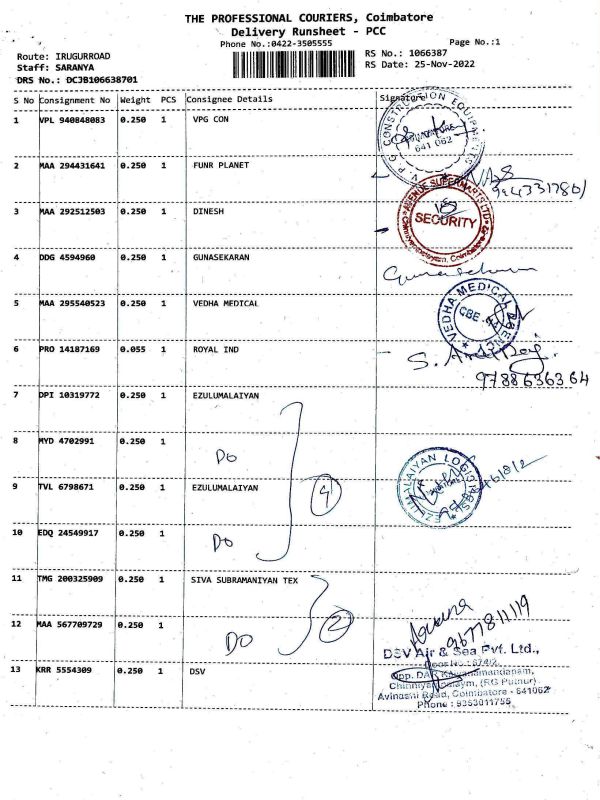 THE PROFESSIONAL COURIERS, Coimbatore
Delivery Runsheet - PCC
Phone No.:0422-3505555
Page No.:1
Route: IRUGURROAD
RS No.: 1066387
Staff: SARANYA
RS Date: 25-Nov-2022
DRS No.: DCJB106638701
S No Consignment No Weight PCS Consignee Details Signature
1 VPL 940848083 0.250 1 VPG CON
V. P. G CONSTRUCTION EQUIPMENTS
641 062
2 MAA 294431641 0.250 1 FUNR PLANET
3 MAA 292512503 0.250 1 DINESH
AVENUE SUPERMARTS LTD
SECURITY
4 DDG 4594960 0.250 1 GUNASEKARAN
Gunasekaran
5 MAA 295540523 0.250 1 VEDHA MEDICAL
VEDHA MEDICAL AGENCIES
CBE-
6 PRO 14187169 0.055 1 ROYAL IND
9788636364
7 DPI 10319772 0.250 1 EZULUMALAIYAN
8 MYD 4702991 0.250 1 DO
9 TVL 6798671 0.250 1 EZULUMALAIYAN 4
EZULUMALAIYAN LOGISTICS
10 EDQ 24549917 0.250 1 DO
11 TMG 200325909 0.250 1 SIVA SUBRAMANIYAN TEX
12 MAA 567709729 0.250 1 DO 2
9677811119
13 KRR 5554309 0.250 1 DSV
DSV Air & Sea Pvt. Ltd.,
Avinashi Road, Coimbatore - 641062
Phone : 9353011755